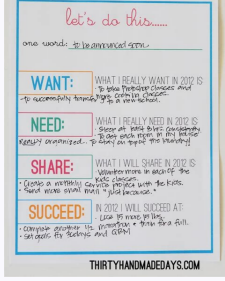 let's do this......
one word: to be announced soon.
WANT: WHAT I REALLY WANT IN 2012 IS:
· To take Photoshop classes and
more cooking classes.
· to successfully transfer to a new school.
NEED: WHAT I REALLY NEED IN 2012 IS:
· Sleep at least 8 hrs consistently
· To get each room in my house
REALLY organized. · To stay on top of the laundry!
SHARE: WHAT I WILL SHARE IN 2012 IS:
· Volunteer more in each of the
kids classes.
· Create a monthly service project with the kids.
· Send more snail mail "just because."
SUCCEED: IN 2012 I WILL SUCCEED AT:
· Lose 15 more lbs.
· Complete another 1/2 marathon + train for a full.
· Set goals for
THIRTYHANDMADEDAYS.COM